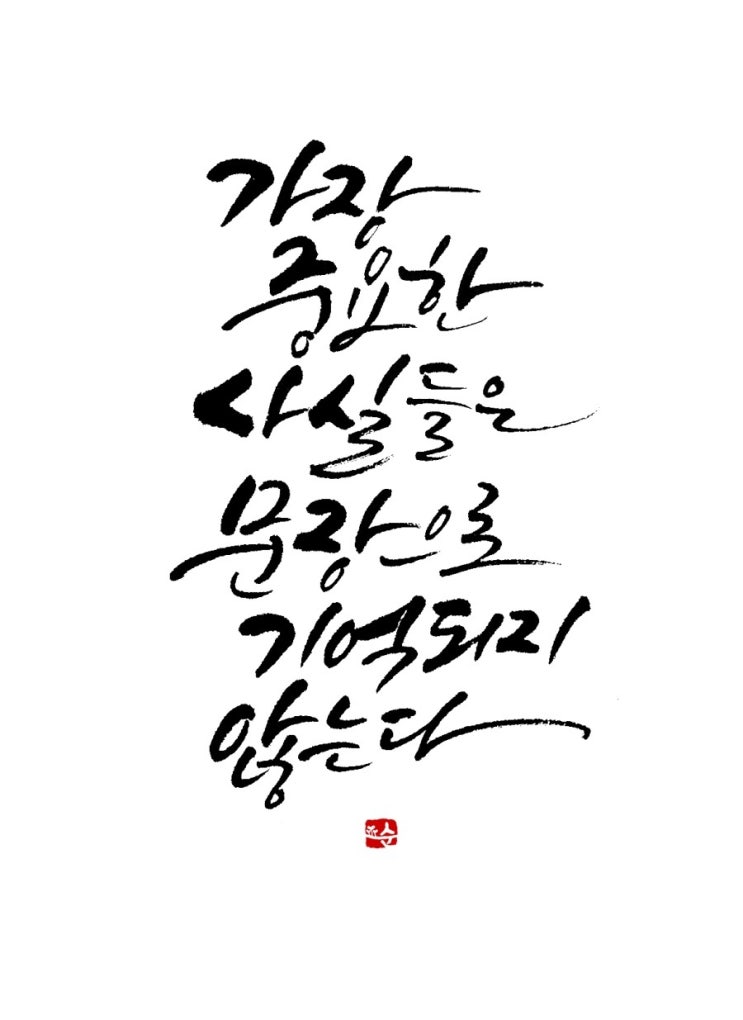 가장
중요한
사실들은
문장으로
기억되지
않는다